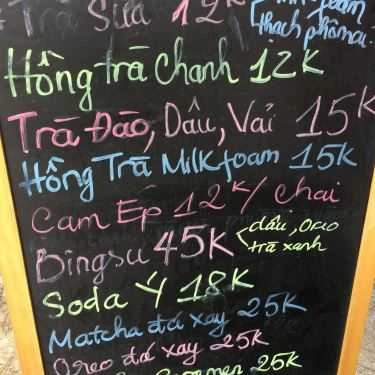 Trà Sữa 12K
thạch phômai
Hồng trà chanh 12K
Trà Đào, Dâu, Vải 15K
Hồng Trà Milkfoam 15K
Cam Ép 12K/chai
Bingsu 45K dâu, Oreo
trà xanh
Soda Ý 18K
Matcha đá xay 25K
Oreo đá xay 25K
25K